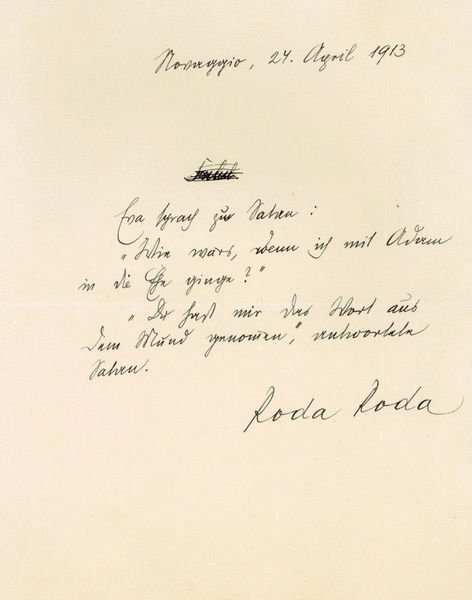 Novaggio, 24. April 1913
Eva sprach zu Satan:
„Wie wärs, wenn ich mit Adam
in die Ehe ginge?“
„Du hast mir das Wort aus
dem Mund genomen“, antwortete
Satan.
Roda Roda